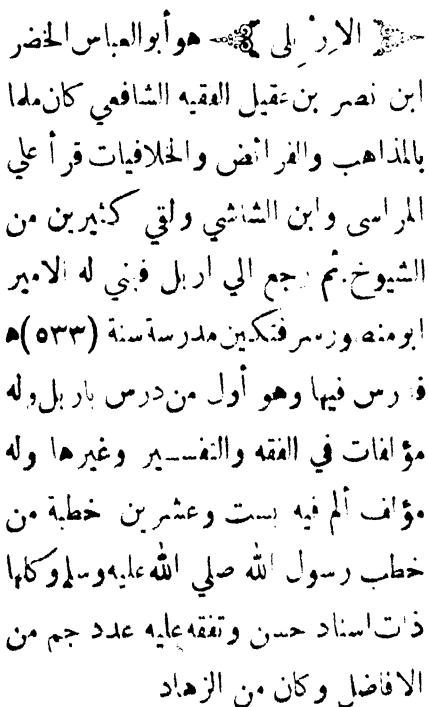 ﴿ الاربلى ﴾ هو أبو العباس الخضر
ابن نصر بن عقيل الفقيه الشافعي كان ملما
بالمذاهب والفرائض والخلافيات قرأ علي
الهراسى وابن الشاشي ولقي كثيرين من
الشيوخ. ثم رجع الي اربل فبني له الامير
ابو منصور سرفتكين مدرسة سنة (٥٣٣) ه
فدرس فيها وهو أول من درس باربل وله
مؤلفات في الفقه والتفسير وغيرها وله
مؤلف ألم فيه بست وعشرين خطبة من
خطب رسول الله صلي الله عليه وسلم وكلها
ذات اسناد حسن وتفقه عليه عدد جم من
الافاضل وكان من الزهاد